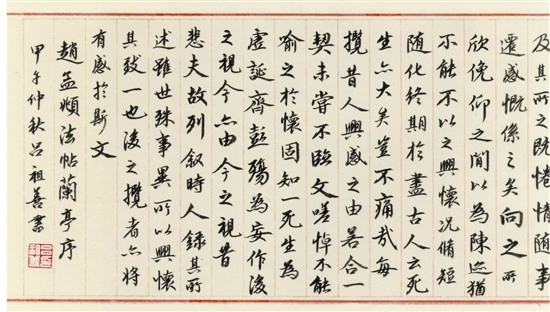 及其所之既惓情随事
遷感慨係之矣向之所
欣俛仰之間以為陳迹猶
不能不以之興懷况脩短
随化終期於盡古人云死
生亦大矣豈不痛哉每
攬昔人興感之由若合一
契未嘗不臨文嗟悼不能
喻之於懷固知一死生為
虚誕齊彭殤為妄作後
之視今亦由今之視昔
悲夫故列叙時人録其所
述雖世殊事異所以興懷
其致一也後之攬者亦将
有感於斯文
趙孟頫法帖蘭亭序
甲午仲秋吕祖善書